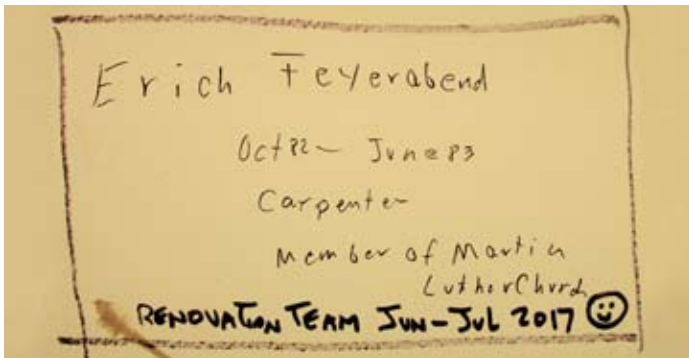 Erich Feyerabend
Oct 82 – June 83
Carpenter
Member of Martin
Luther Church
RENOVATION TEAM JUN-JUL 2017